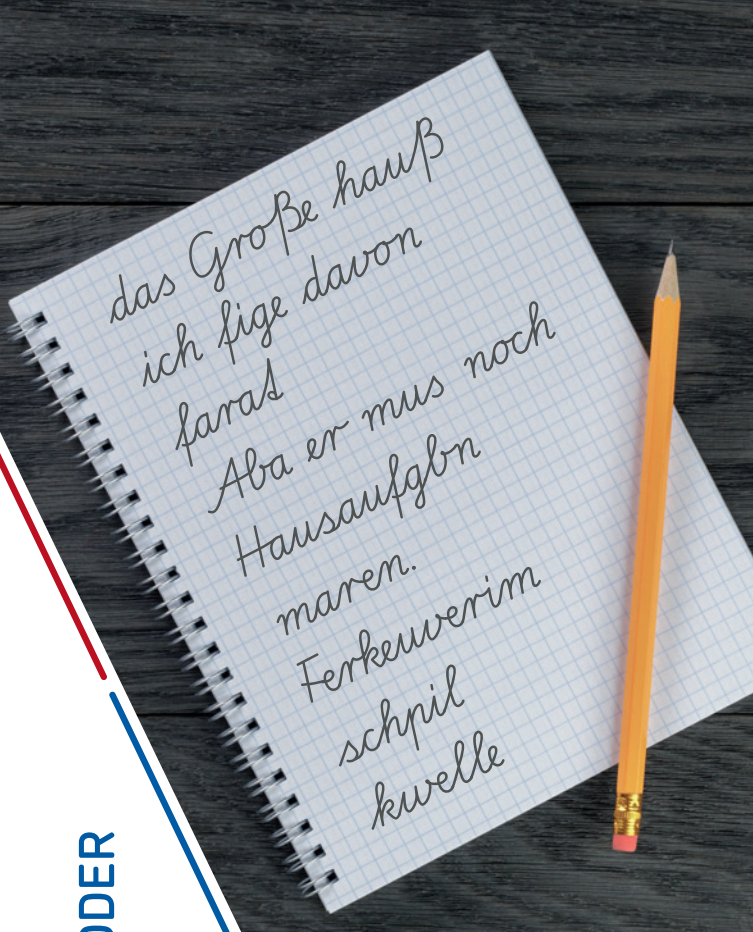 das Große hauß
ich fige davon
farat
Aba er mus noch
Hausaufgbn
maren.
Ferkeuverim
schpil
kwelle
ODER